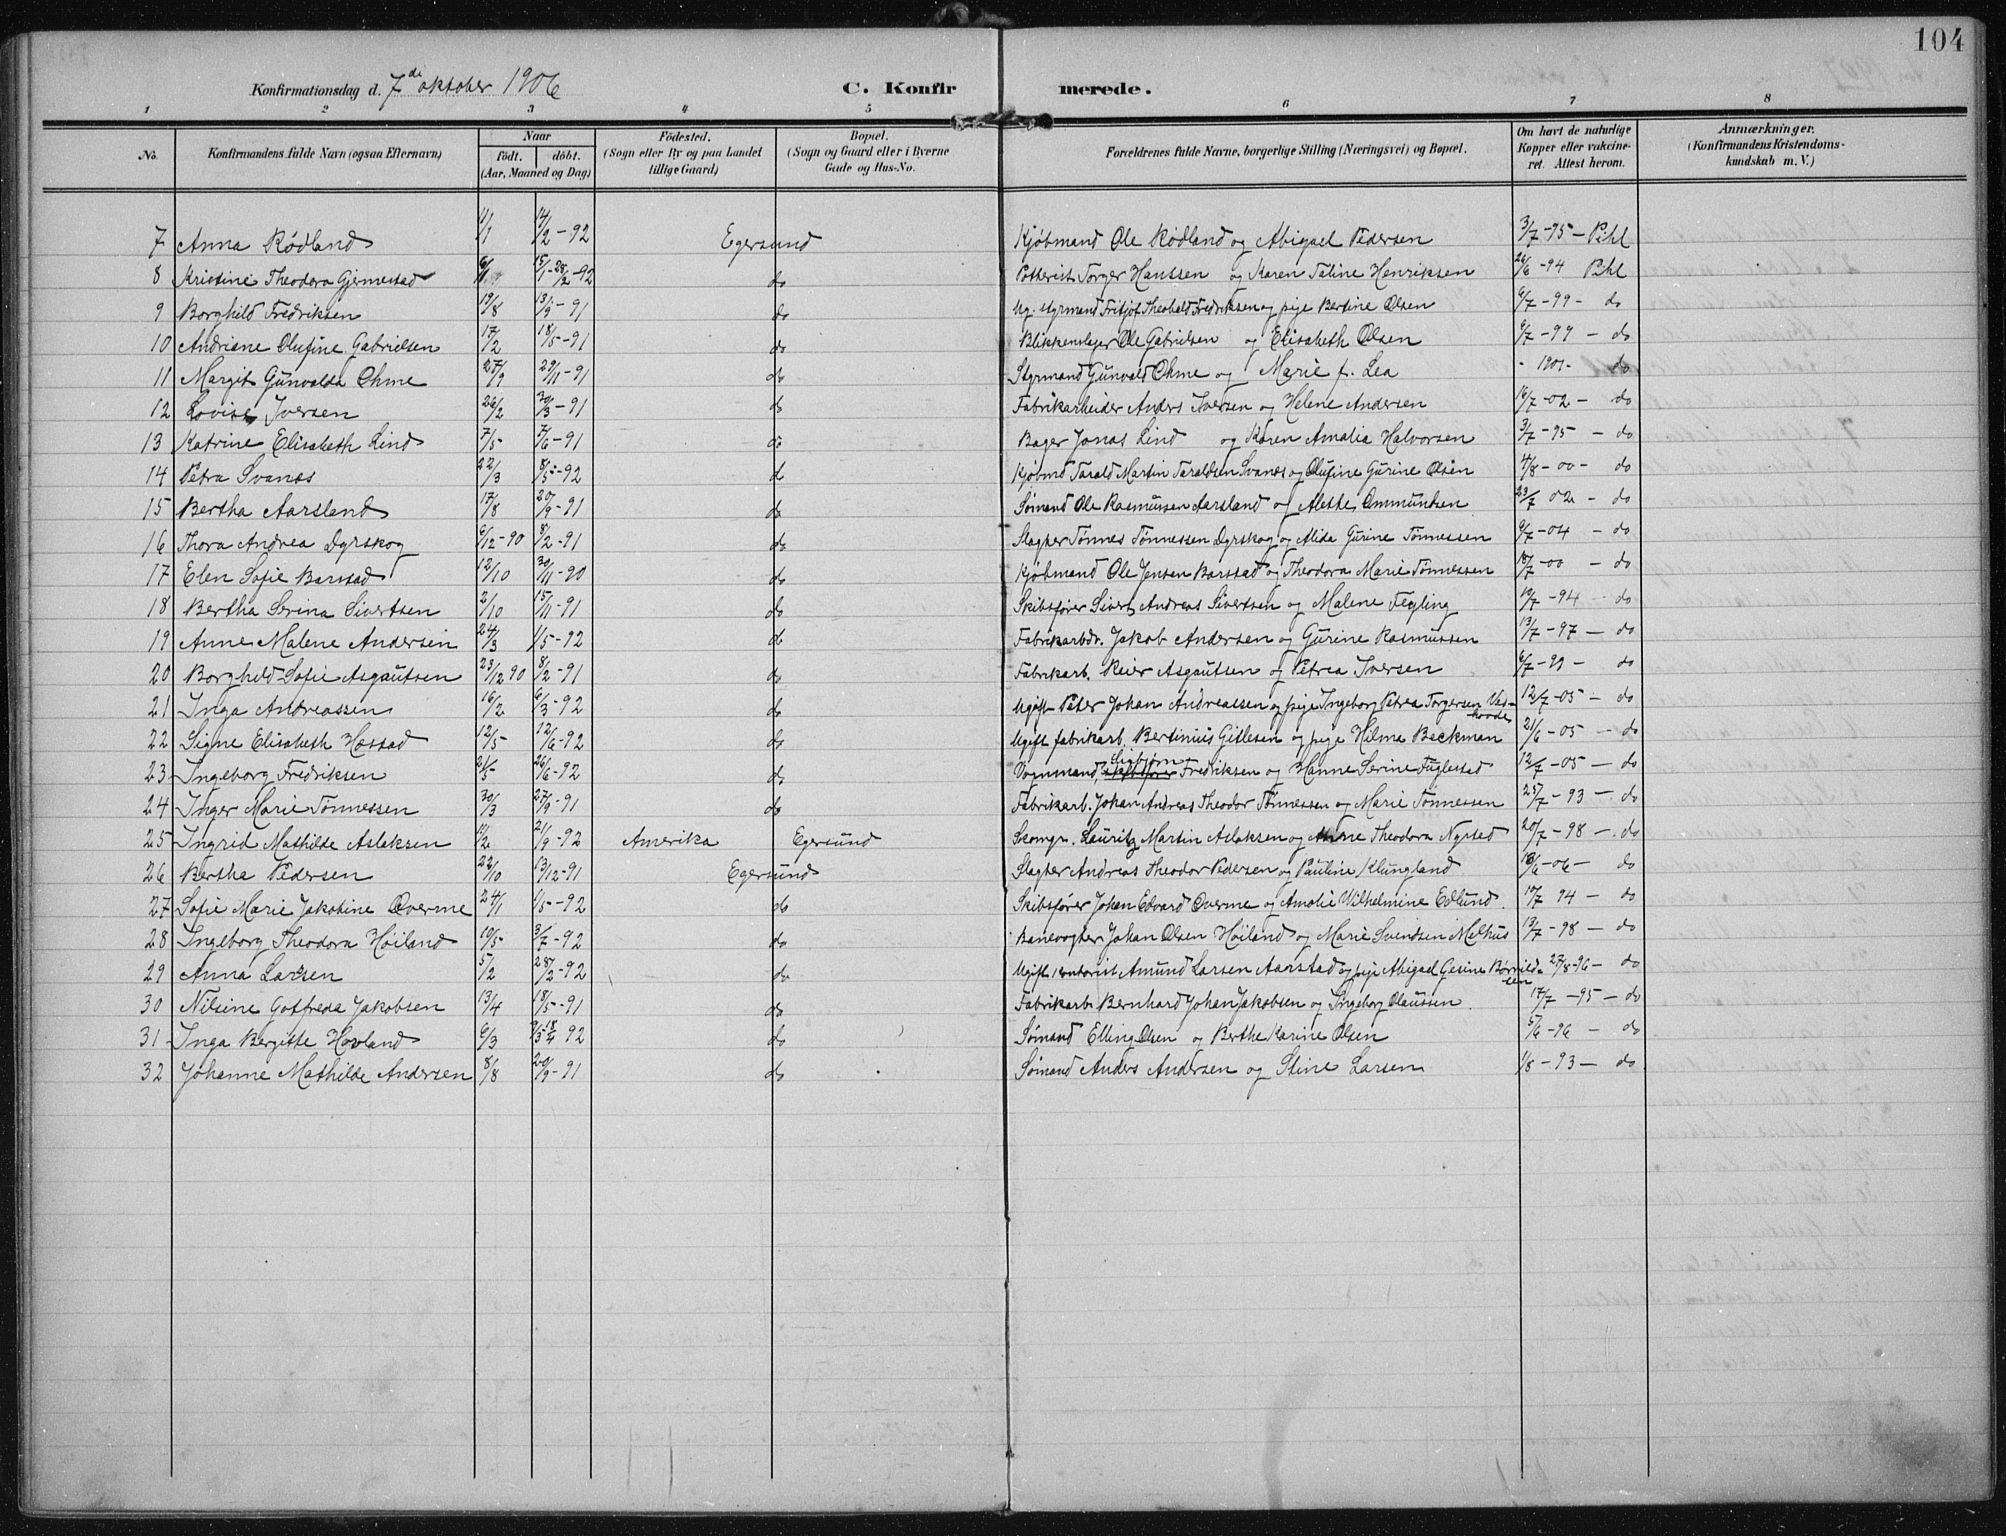 104
Konfirmationsdag d. 7de oktober 1906 C. Konfirmerede.
1 2 3 4 5 6 7 8
No. Konfirmandens fulde Navn (ogsaa Efternavn) Naar født. døbt. (Aar, Maaned og Dag) Fødested. (Sogn eller By og paa Landet tillige Gaard) Bopæl. (Sogn og Gaard eller i Byerne Gade og Hus-No. Forældrenes fulde Navne, borgerlige Stilling (Næringsvei) og Bopæl. Om havt de naturlige Kopper eller vakcineret. Attest herom. Anmærkninger. (Konfirmandens Kristendomskundskab m. V.)
7 Anna Rödland 11/1 14/2-92 Egersund Kjøbmand Ole Rödland og Abigael Pedersen 3/7-95 - Pihl
8 Kristine Theodora Gjermestad 15/1-28/2-92 do Potterist Torger Hanssen og Karen Taline Henriksen 26/6-94 Pihl
9 Borghild Fredriksen 19/8 13/9-91 do Ug. styrmand Fritjof Theobald Fredriksen og pige Bertine Olsen 6/7-99- do
10 Andriane Olufine Gabrielsen 17/2 18/5-91 do Blikkenslager Ole Gabrielsen og Elisabeth Olsen 6/7-99 - do
11 Margit Gunvalda Ohme 27/9 29/11-91 do Styrmand Gunvald Ohme og Marie f. Lea - 1901- do
12 Lovise Iversen 26/2 30/3-91 do Fabrikarbeider Anders Iversen og Helene Andersen 16/7-02 - do
13 Katrine Elisabeth Lind 7/5 7/6-91 do Bager Jonas Lind og Karen Amalia Halvorsen 3/7-95 - do
14 Petra Svanæs 22/3 8/5-92 do Kjøbmd Tarald Martin Taraldsen Svanæs og Olufine Gurine Olsen 4/8-00 - do
15 Bertha Aarsland 17/8 20/9-91 do Sømand Ole Rasmussen Aarsland og Alette Ommundsen 23/7 02 - do
16 Thora Andrea Dyrskog 6/12-90 8/2-91 do Slagter Tønnes Tønnessen Dyrskog og Alida Gurine Tønnessen 6/7-04 - do
17 Elen Sofie Barstad 12/10 30/11-90 do Kjøbmand Ole Jensen Barstad og Theodora Marie Tønnessen 18/7-00 - do
18 Bertha Serina Sivertsen 2/10 15/11-91 do Skibsfører Sivert Andreas Sivertsen og Malene Tegling 19/7-94 - do
19 Anne Malene Andersen 24/3 1/5-92 do Fabrikarbdr. Jakob Andersen og Gurine Rasmussen 13/7-97 - do
20 Borghild Sofie Asgautsen 23/12 90 8/2-91 do Fabrikarb. Reier Asgautsen og Petrea Iversen 6/7-99 - do
21 Inga Andreassen 16/2 6/3-92 do Ugift Peter Johan Andreassen og pige Ingeborg Petrea Torgersen 12/7-05 - do
22 Signe Elisabeth Hæstad 12/5 12/6-92 do Ugift fabrikarb. Bertinius Gitlesen og pige Hilma Beckman 21/6-05 - do
23 Ingeborg Fredriksen 21/5 26/6-92 do Vognmand Sigbjørn Fredriksen og Hanne Serine Fuglestad 12/7-05 - do
24 Inger Marie Tønnessen 30/3 27/9-91 do Fabrikarb. Johan Andreas Theodor Tønnessen og Marie Tønnessen 25/7-93 - do
25 Ingrid Mathilde Aslaksen 11/2 21/9-92 Amerika Egersund Skomgr. Lauritz Martin Aslaksen og Theodora Nystad 20/7-98 - do
26 Berthe Pedersen 22/10 13/12-91 Egersund Slagter Andreas Theodor Pedersen og Pauline Klungland 18/6-06 - do
27 Sofie Marie Jakobine Overme 24/1 1/5-92 do Skibsfører Johan Edvard Overme og Amalie Wilhelmine Edlund. 10/7 94 - do
28 Ingeborg Theodora Høiland 19/5 3/7-92 do Banevogter Johan Olsen Høiland og Marie Svendsen Melhus 13/7-98 - do
29 Anna Larsen 5/2 28/2-92 do Ugift kontorist Amund Larsen Aarstad og pige Abigael Gesine Børrildsen 27/8-96 - do
30 Nilsine Gotfreda Jakobsen 13/4 18/5-91 do Fabrikarb. Bernhard Johan Jakobsen og Ingeborg Olaussen. 17/7-95 - do
31 Inga Bergitte Hovland 6/3 18/4 92 do Sømand Elling Olsen og Berthe Karine Olsen 5/6-96 - do
32 Johanne Mathilde Andersen 8/8 20/9-91 do Sømand Anders Andersen og Stine Larsen 1/8-93 - do